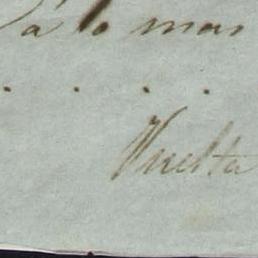 a lo mas
. . . .
Vuelta